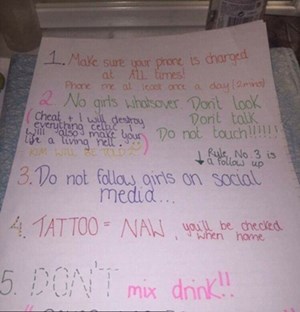 1. Make sure your phone is charged
at ALL times!
Phone me at least once a day (2mins)
2. No girls whatsover Don't Look
Don't talk
Do not touch!!!!!!
(Cheat + I will destroy
everything celtic I
will also make your
life a living hell.)
↓ Rule No 3 is
a follow up
3. Do not follow girls on social
media...
4. TATTOO = NAW, you'll be checked
when home
5. DON'T mix drink!!